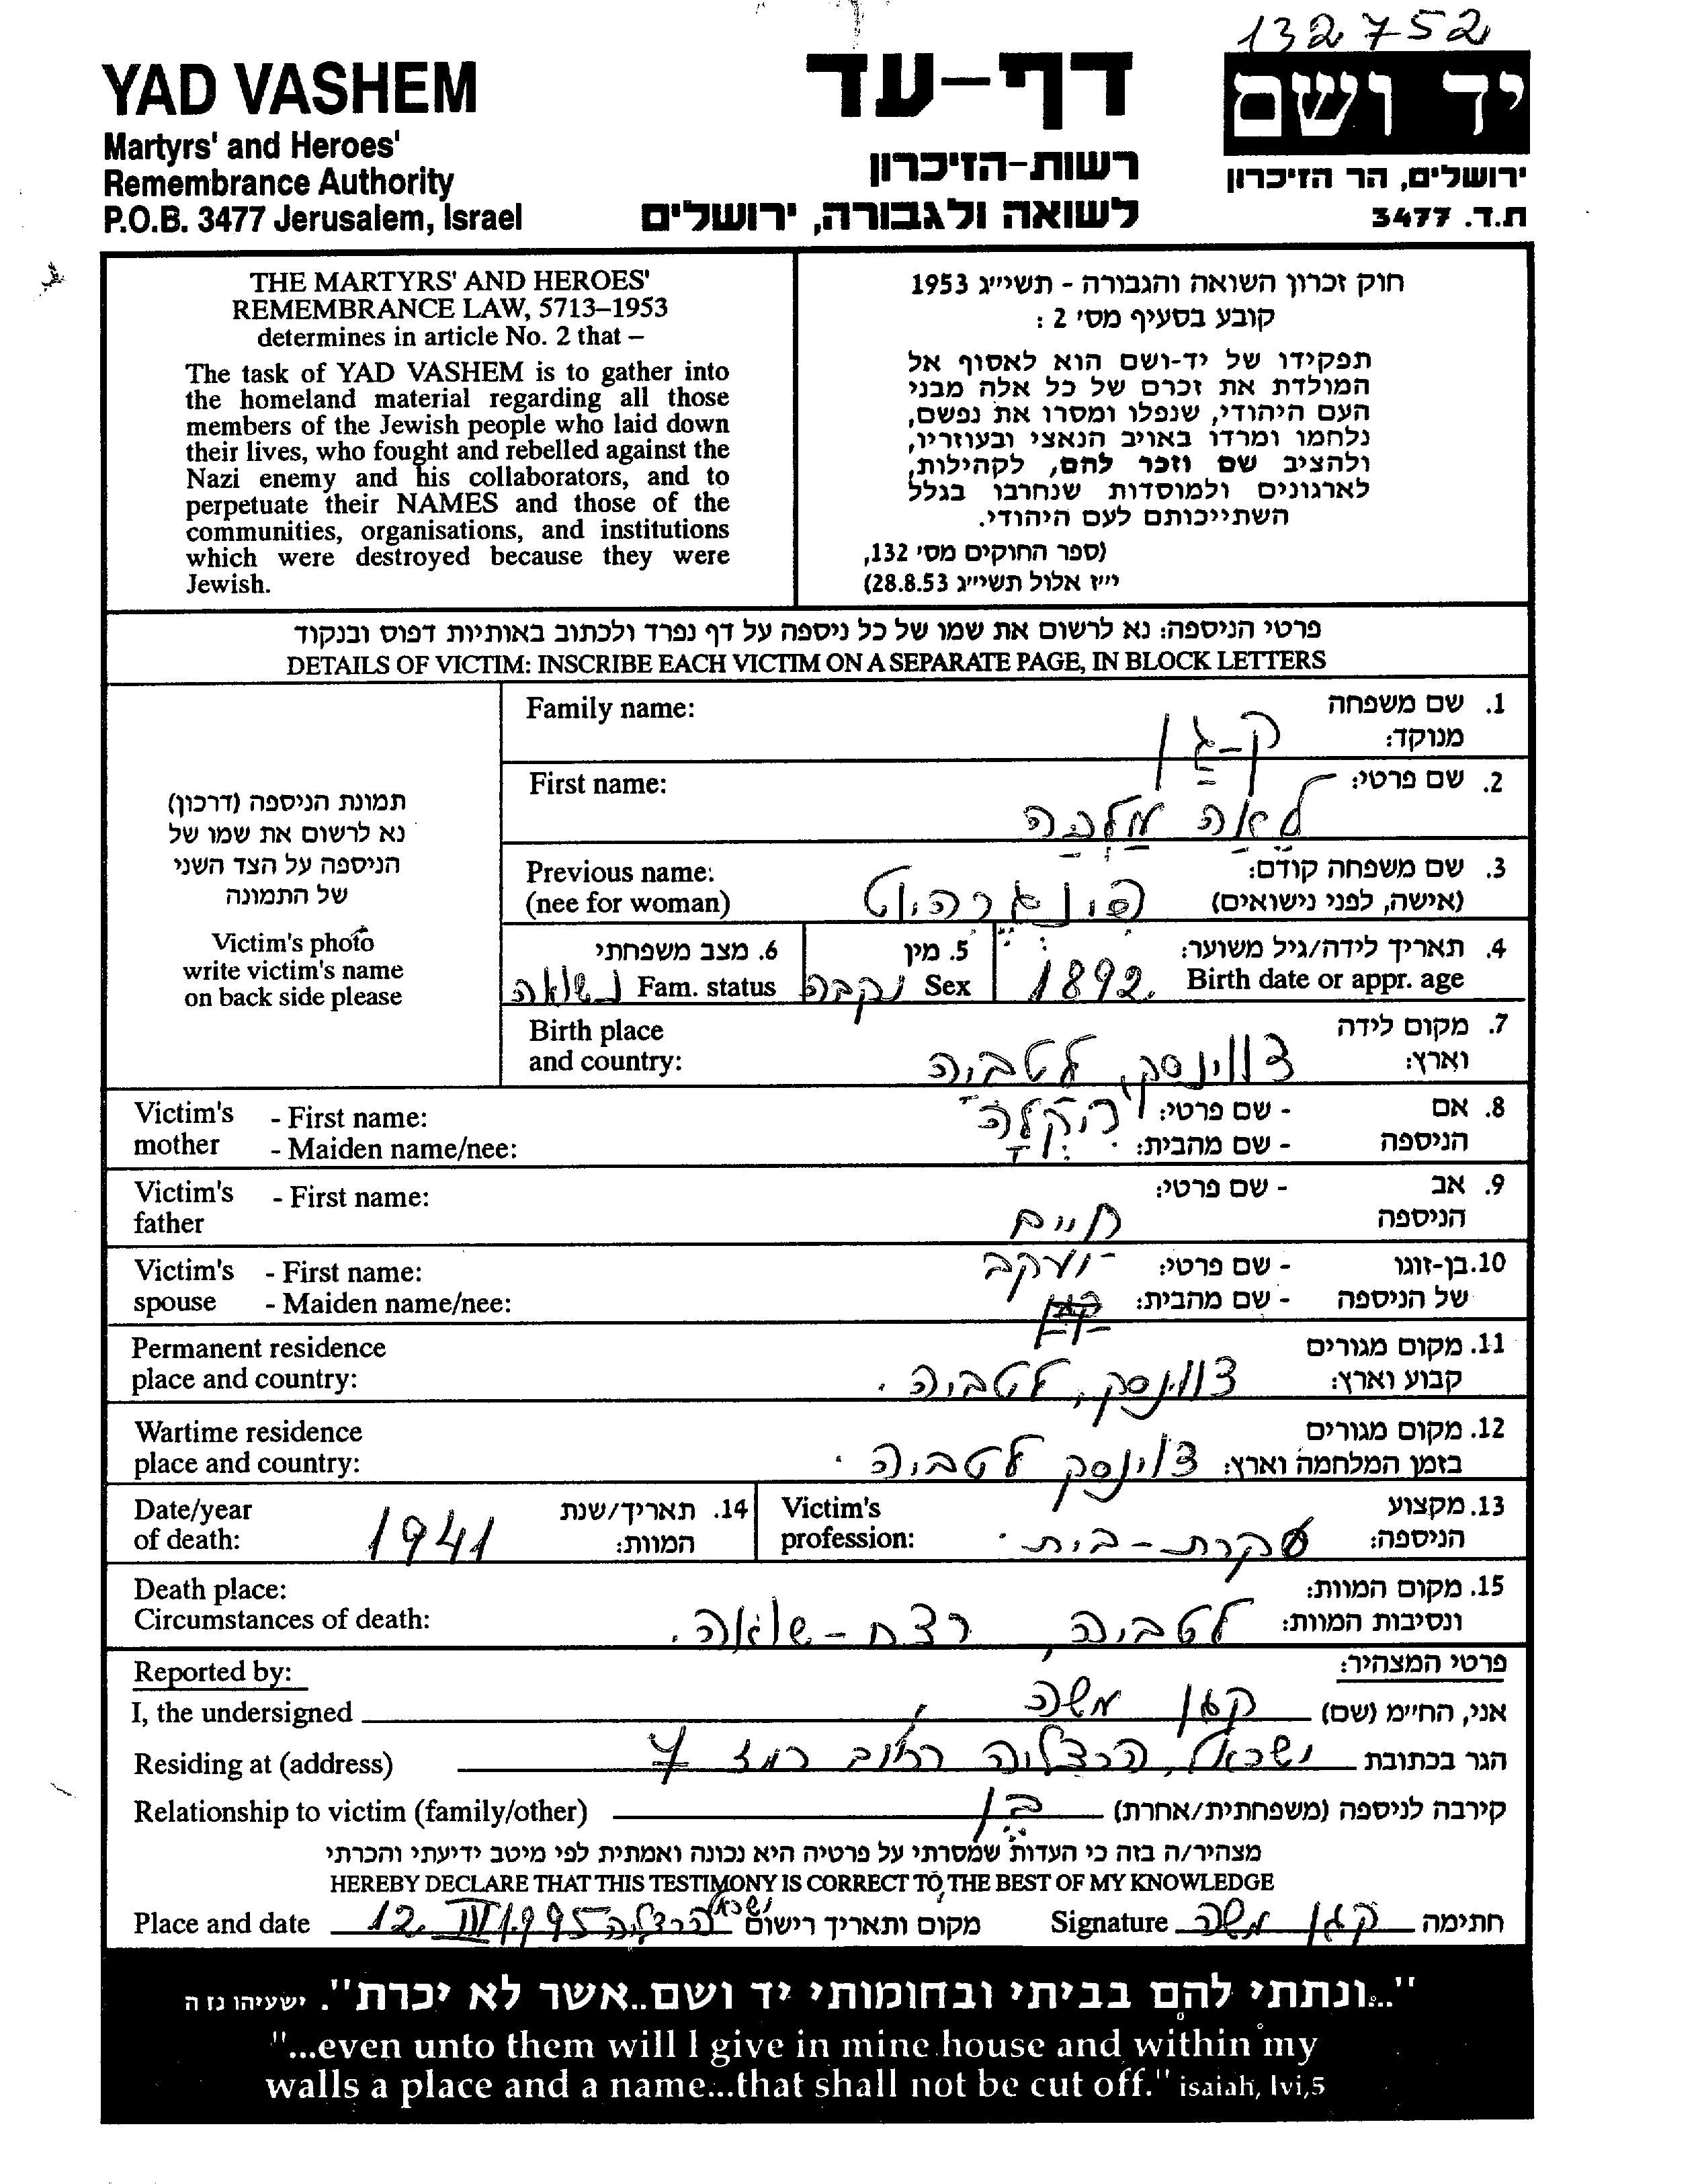 132752
YAD VASHEM
Martyrs' and Heroes'
Remembrance Authority
P.O.B. 3477 Jerusalem, Israel
דף-עד
רשות-הזיכרון
לשואה ולגבורה, ירושלים
יד ושם
ירושלים, הר הזיכרון
ת.ד. 3477
THE MARTYRS' AND HEROES'
REMEMBRANCE LAW, 5713–1953
determines in article No. 2 that –
The task of YAD VASHEM is to gather into
the homeland material regarding all those
members of the Jewish people who laid down
their lives, who fought and rebelled against the
Nazi enemy and his collaborators, and to
perpetuate their NAMES and those of the
communities, organisations, and institutions
which were destroyed because they were
Jewish.
חוק זכרון השואה והגבורה - תשי״ג 1953
קובע בסעיף מס' 2 :
תפקידו של יד-ושם הוא לאסוף אל
המולדת את זכרם של כל אלה מבני
העם היהודי, שנפלו ומסרו את נפשם,
נלחמו ומרדו באויב הנאצי ובעוזריו,
ולהציב שם וזכר להם, לקהילות,
לארגונים ולמוסדות שנחרבו בגלל
השתייכותם לעם היהודי.
(ספר החוקים מס' 132,
י״ז אלול תשי״ג 28.8.53)
פרטי הניספה: נא לרשום את שמו של כל ניספה על דף נפרד ולכתוב באותיות דפוס ובנקוד
DETAILS OF VICTIM: INSCRIBE EACH VICTIM ON A SEPARATE PAGE, IN BLOCK LETTERS
תמונת הניספה (דרכון)
נא לרשום את שמו של
הניספה על הצד השני
של התמונה
Victim's photo
write victim's name
on back side please
Family name: 1. שם משפחה
מנוקד:
First name: 2. שם פרטי:
לאה מלכה
Previous name: 3. שם משפחה קודם:
(nee for woman) (אישה, לפני נישואים)
4. תאריך לידה/גיל משוער:
Birth date or appr. age 1892.
5. מין
Sex נקבה
6. מצב משפחתי
Fam. status נשואה
Birth place 7. מקום לידה
and country: וארץ: דווינסק, לטביה
Victim's - First name: 8. אם - שם פרטי:
mother - Maiden name/nee: הניספה - שם מהבית:
Victim's - First name: 9. אב - שם פרטי:
father הניספה חיים
Victim's - First name: 10. בן-זוגו - שם פרטי: יעקב
spouse - Maiden name/nee: של הניספה - שם מהבית:
Permanent residence 11. מקום מגורים
place and country: קבוע וארץ: דווינסק, לטביה.
Wartime residence 12. מקום מגורים
place and country: בזמן המלחמה וארץ: דוינסק לטביה.
Victim's 13. מקצוע
profession: הניספה: עקרת-בית.
Date/year 14. תאריך/שנת
of death: המוות: 1941
Death place: 15. מקום המוות:
Circumstances of death: ונסיבות המוות: לטביה, רצח - שואה.
Reported by: פרטי המצהיר:
I, the undersigned אני, החי״מ (שם) קגן משה
Residing at (address) הגר בכתובת ישראל, הרצליה רחוב רמז 7
Relationship to victim (family/other) קירבה לניספה (משפחתית/אחרת) בן
מצהיר/ה בזה כי העדות שמסרתי על פרטיה היא נכונה ואמתית לפי מיטב ידיעתי והכרתי
HEREBY DECLARE THAT THIS TESTIMONY IS CORRECT TO THE BEST OF MY KNOWLEDGE
Place and date מקום ותאריך רישום ישראל הרצליה 12. III 1995 Signature חתימה קגן משה
"...ונתתי להם בביתי ובחומותי יד ושם..אשר לא יכרת". ישעיהו נז ה
"...even unto them will I give in mine house and within my
walls a place and a name...that shall not be cut off." isaiah, lvi,5